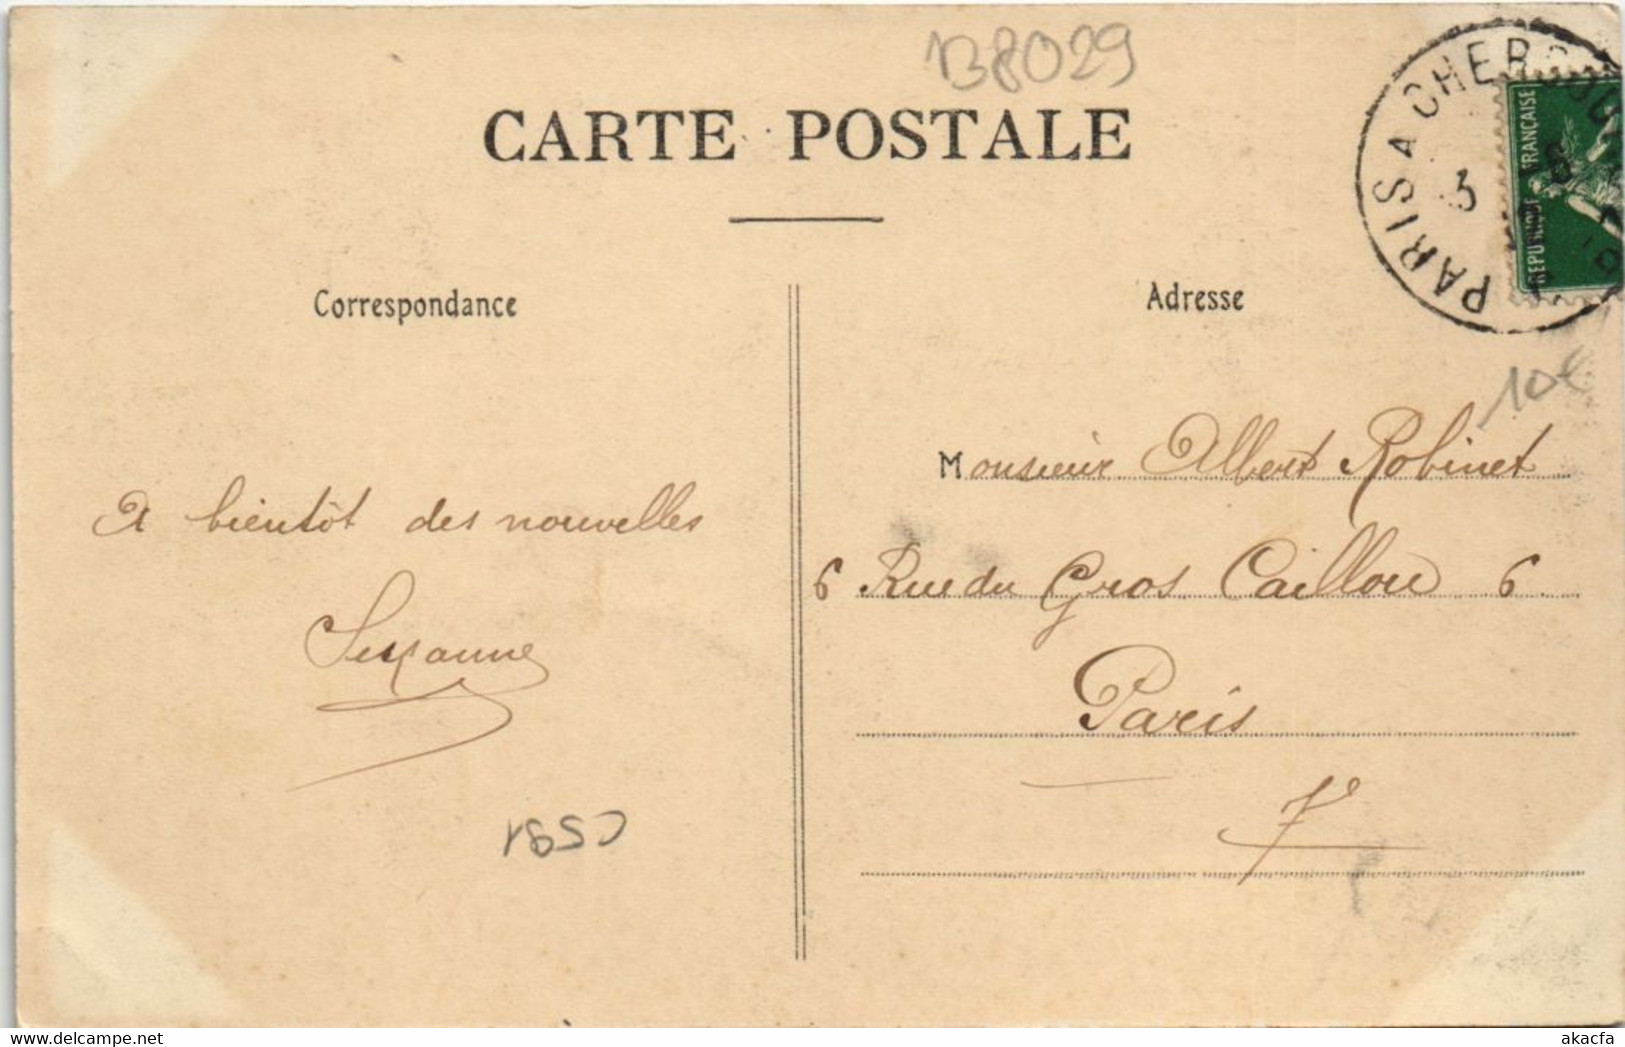 B8029
CARTE POSTALE
PARIS A CHERBOURG
3
REPUBLIQUE FRANÇAISE
Correspondance
Adresse
10€
Monsieur Albert Robinet
A bientôt des nouvelles
6 Rue du Gros Caillou 6
Suzanne
Paris
7e
akacfa